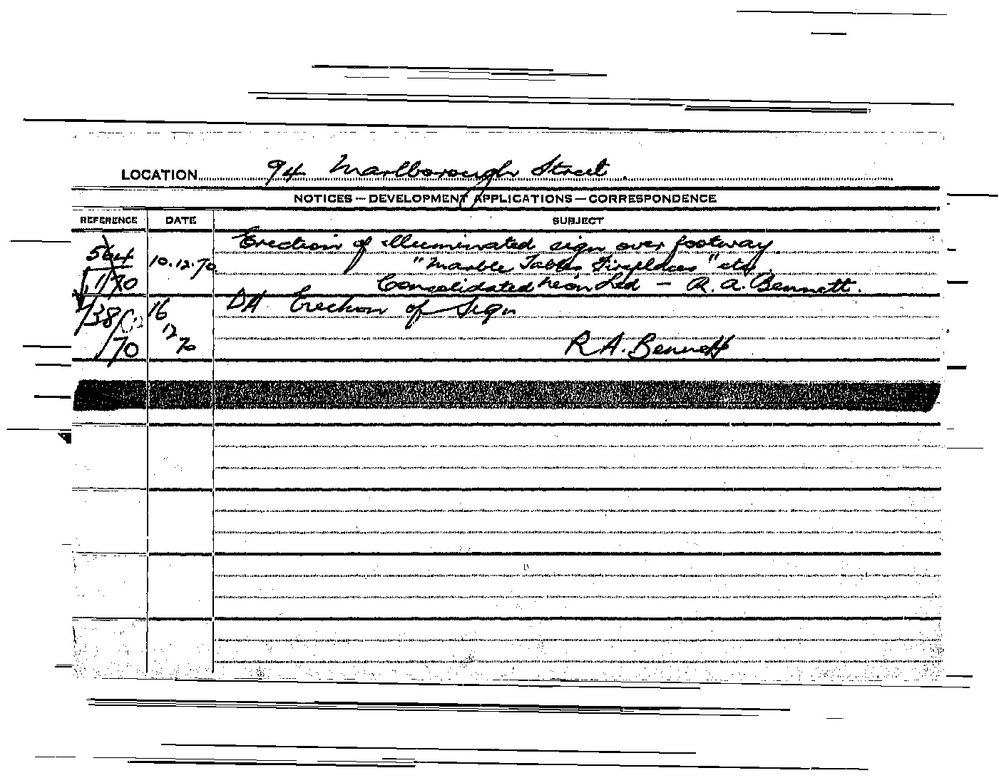 LOCATION 94 Marlborough Street
NOTICES — DEVELOPMENT APPLICATIONS — CORRESPONDENCE
REFERENCE DATE SUBJECT
564 10.12.70 Erection of illuminated sign over footway.
"Marble Tables Fireplaces" etc.
1/70 Consolidated Neon Ltd — R. A. Bennett.
738/ 16 DA Erection of Sign
12
/70 70 R A. Bennett